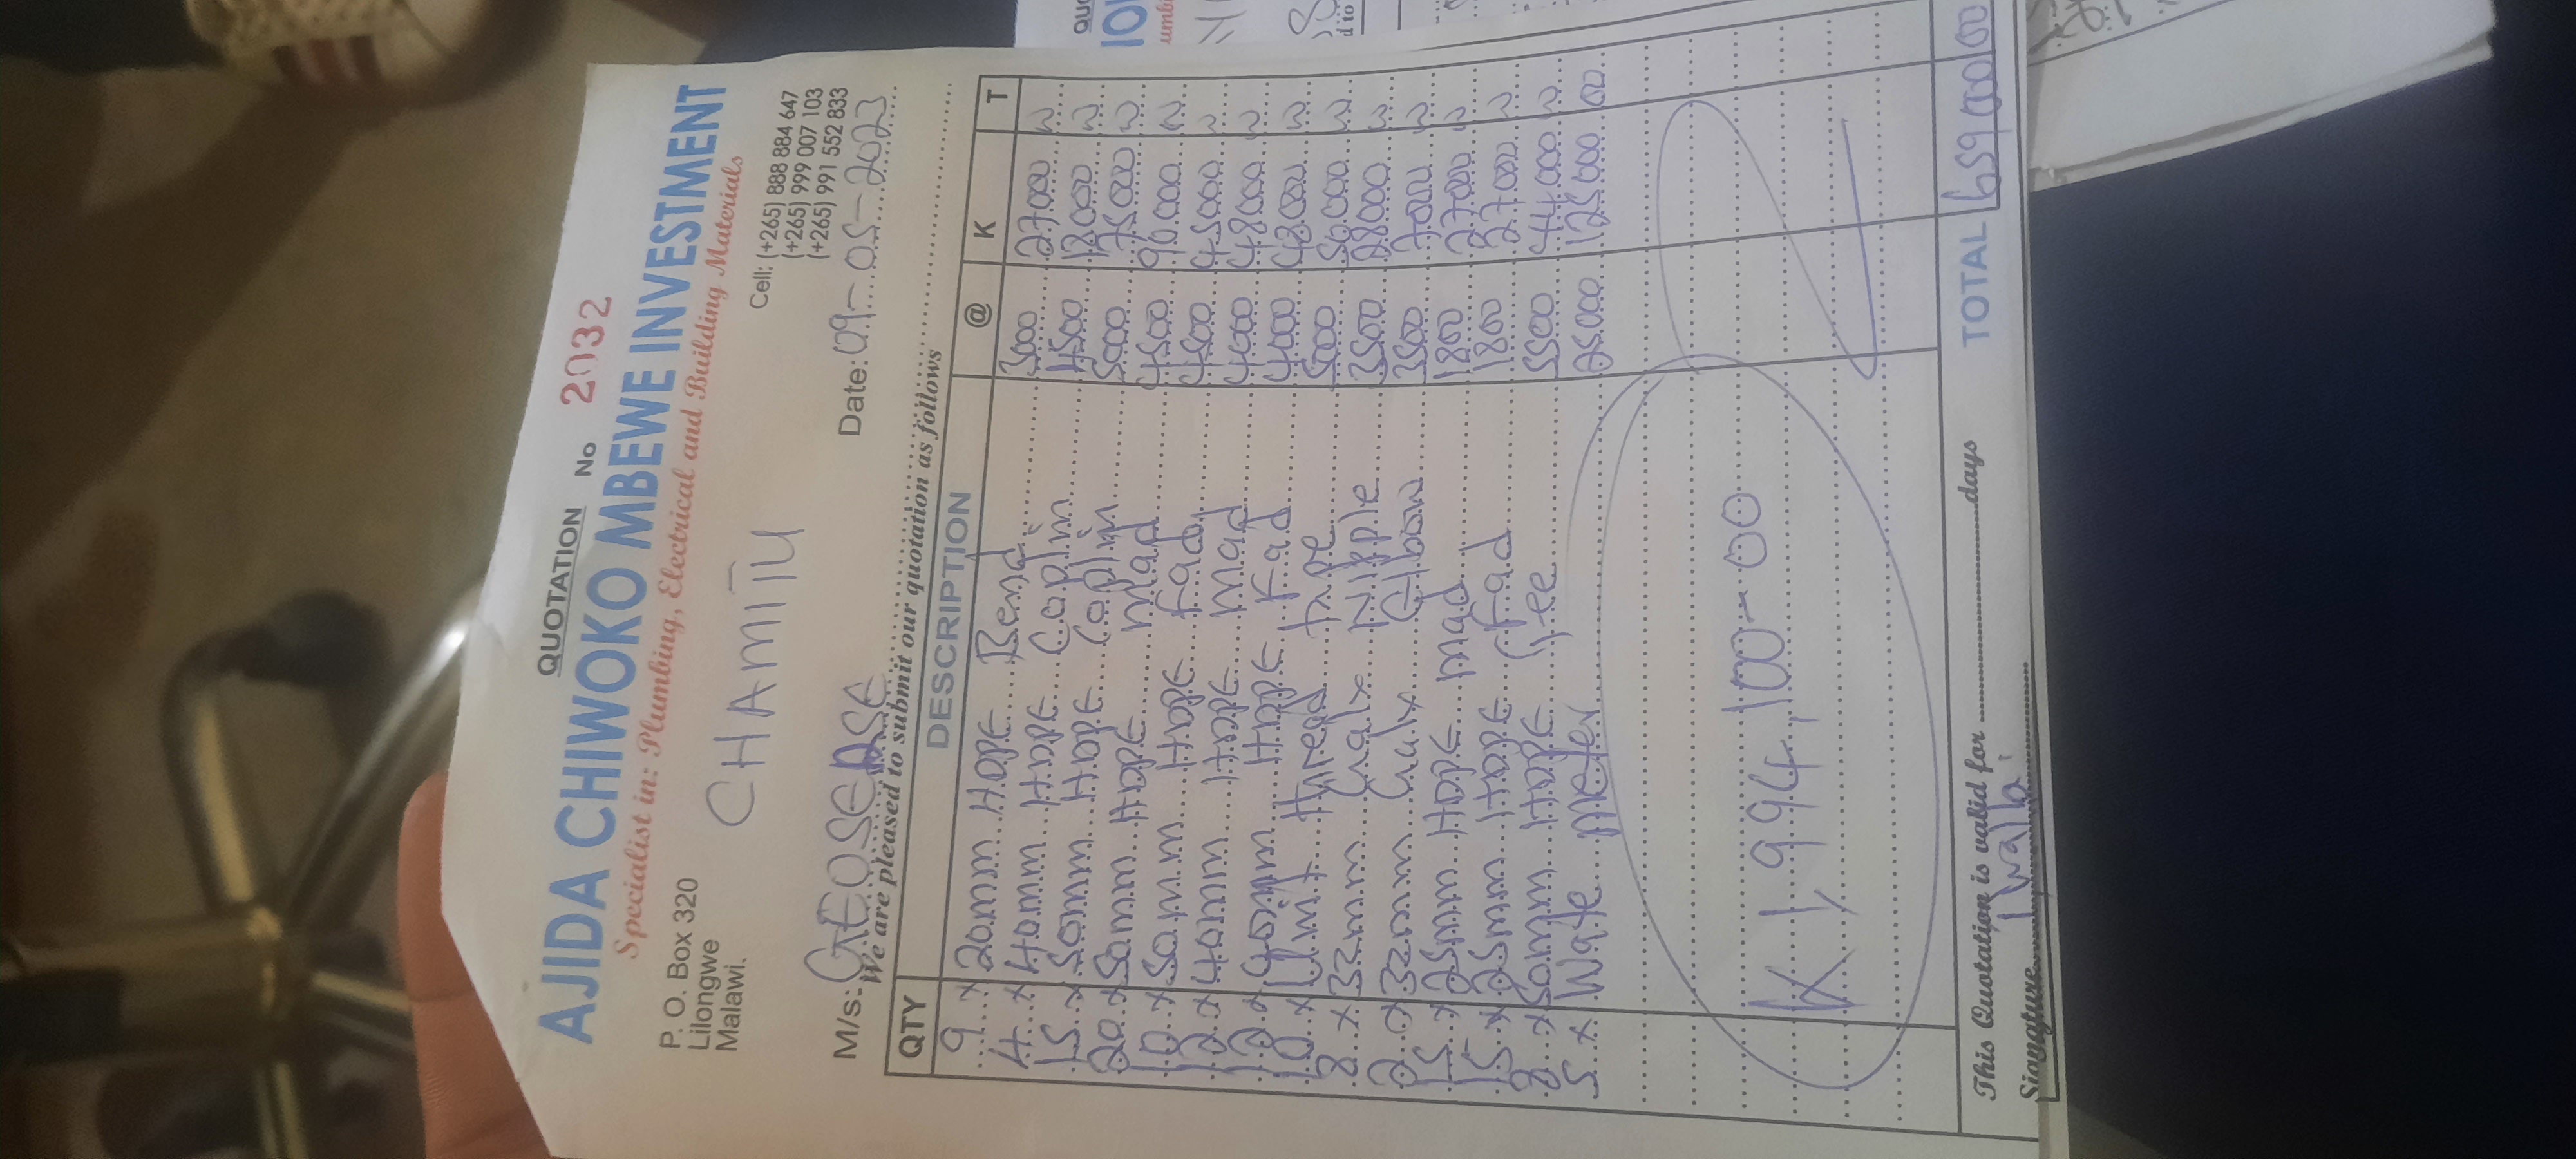 QUOTATION No 2032
AJIDA CHIWOKO MBEWE INVESTMENT
Specialist in: Plumbing, Electrical and Building Materials
P. O. Box 320
Lilongwe
Malawi.
CHAMITU
Cell: (+265) 888 884 647
(+265) 999 007 103
(+265) 991 552 833
M/s: GEOSENSE Date: 09-05-2023
We are pleased to submit our quotation as follows
QTY DESCRIPTION @ K T
9 x 20mm HDPE Bend 3000 27000 00
4 x 40mm HDPE Coplin 4500 18000 00
15 x 50mm HDPE Coplin 5000 75000 00
20 x 50mm HDPE Mad 4500 90.000 00
10 x 50mm HDPE Fad 4500 45000 00
12 x 40mm HDPE Mad 4000 48000 00
12 x 40mm HDPE Fad 4000 48000 00
10 x Unit thread tape 5000 50.000 00
8 x 32mm Galv Nipple 3500 28000 00
2 x 32mm Galv Elbow 3500 7000 00
15 x 25mm HDPE Mad 1800 27000 00
15 x 25mm HDPE Fad 1800 27000 00
8 x 50mm HDPE Tee 5500 44000 00
5 x Wate meter 25000 125000 00
K 1,994,100-00
This Quotation is valid for days TOTAL 659000 00
Siangture